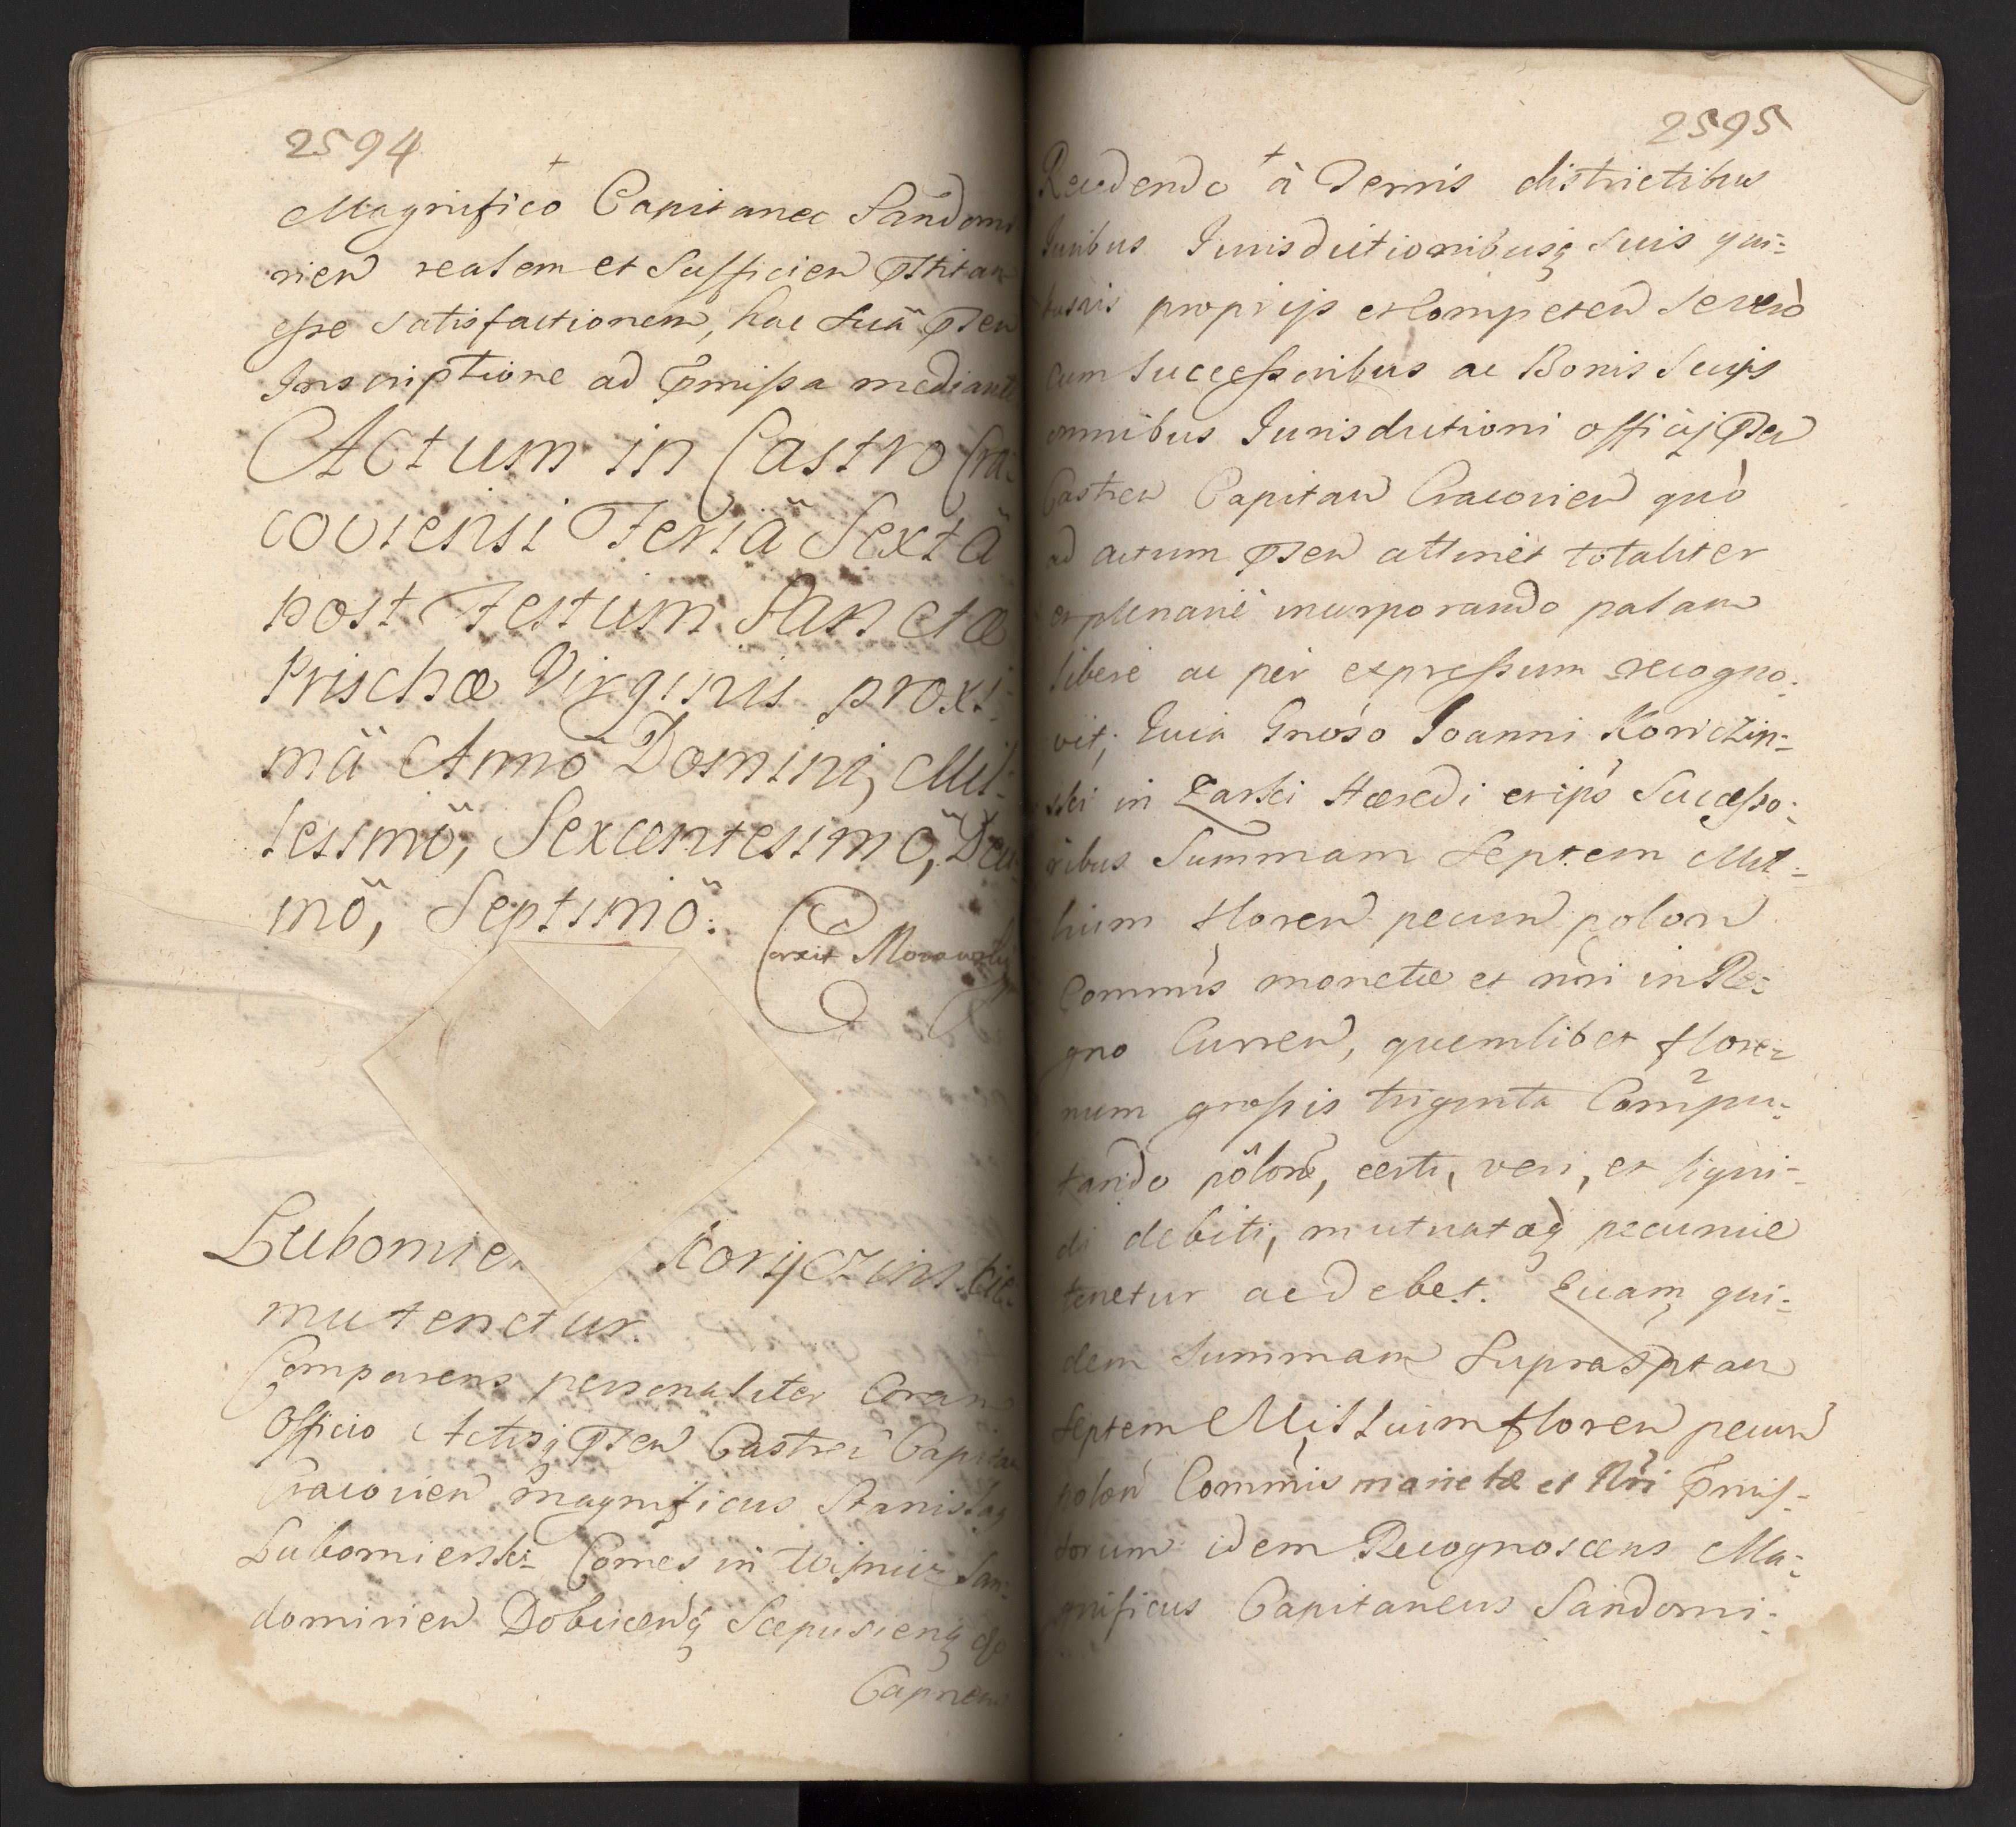 2594
Magnifico Capitaneo Sandomi
rien realem et Sufficien
esse satisfactionem, hac sua
Inscriptione ad mediante
Actum in Castro Cra:
coviensi Feria Sexta
post Festum Sanctæ
Prischæ Virginis proxi:
mä Anno Domini, Mil:
lesimö, Sexcentesimö, Deci
mö, Septimö.
Lubomie Koryczinskie
mu tenetur.
Comparens personaliter Coram
Officio Actisq Castren Capitan
Cracovien Magnificus Stanislaq
Lubomierski Comes in Wisnicz San:
domirien Dobcenq Scepusienq
Capneus
2595
Recedendo à Terris districtibus
Juribus Jurisdictionibusq Suis qui:
busvis proprijs et Competen Seversò
cum Successoribus ac Bonis Suis
omnibus Jurisdictioni officij
Castren Capitan Cracovien quò
ad actum attinet totaliter
et plenariè incorporando palam
liberè ac pèr expressum recogno:
vit; Quia Gnoso Joanni Koriczin:
ski in Hæredi Successo:
ribus Summam Septem Mil:
lium floren pecun polon
Commùs monetæ et nri in Re:
gno Curren, quemlibet flore:
num grossis triginta Compu:
tando polon, certi, veri, et liqui:
di debiti, mutuatæq pecuniæ
tenetur ac debet. Quam qui:
dem Summam Suprasptam
Septem Millium floren pecun
polon Commùis monetæ et Nri
dorum idem Recognoscens Ma:
gnificus Capitaneus Sandomi: